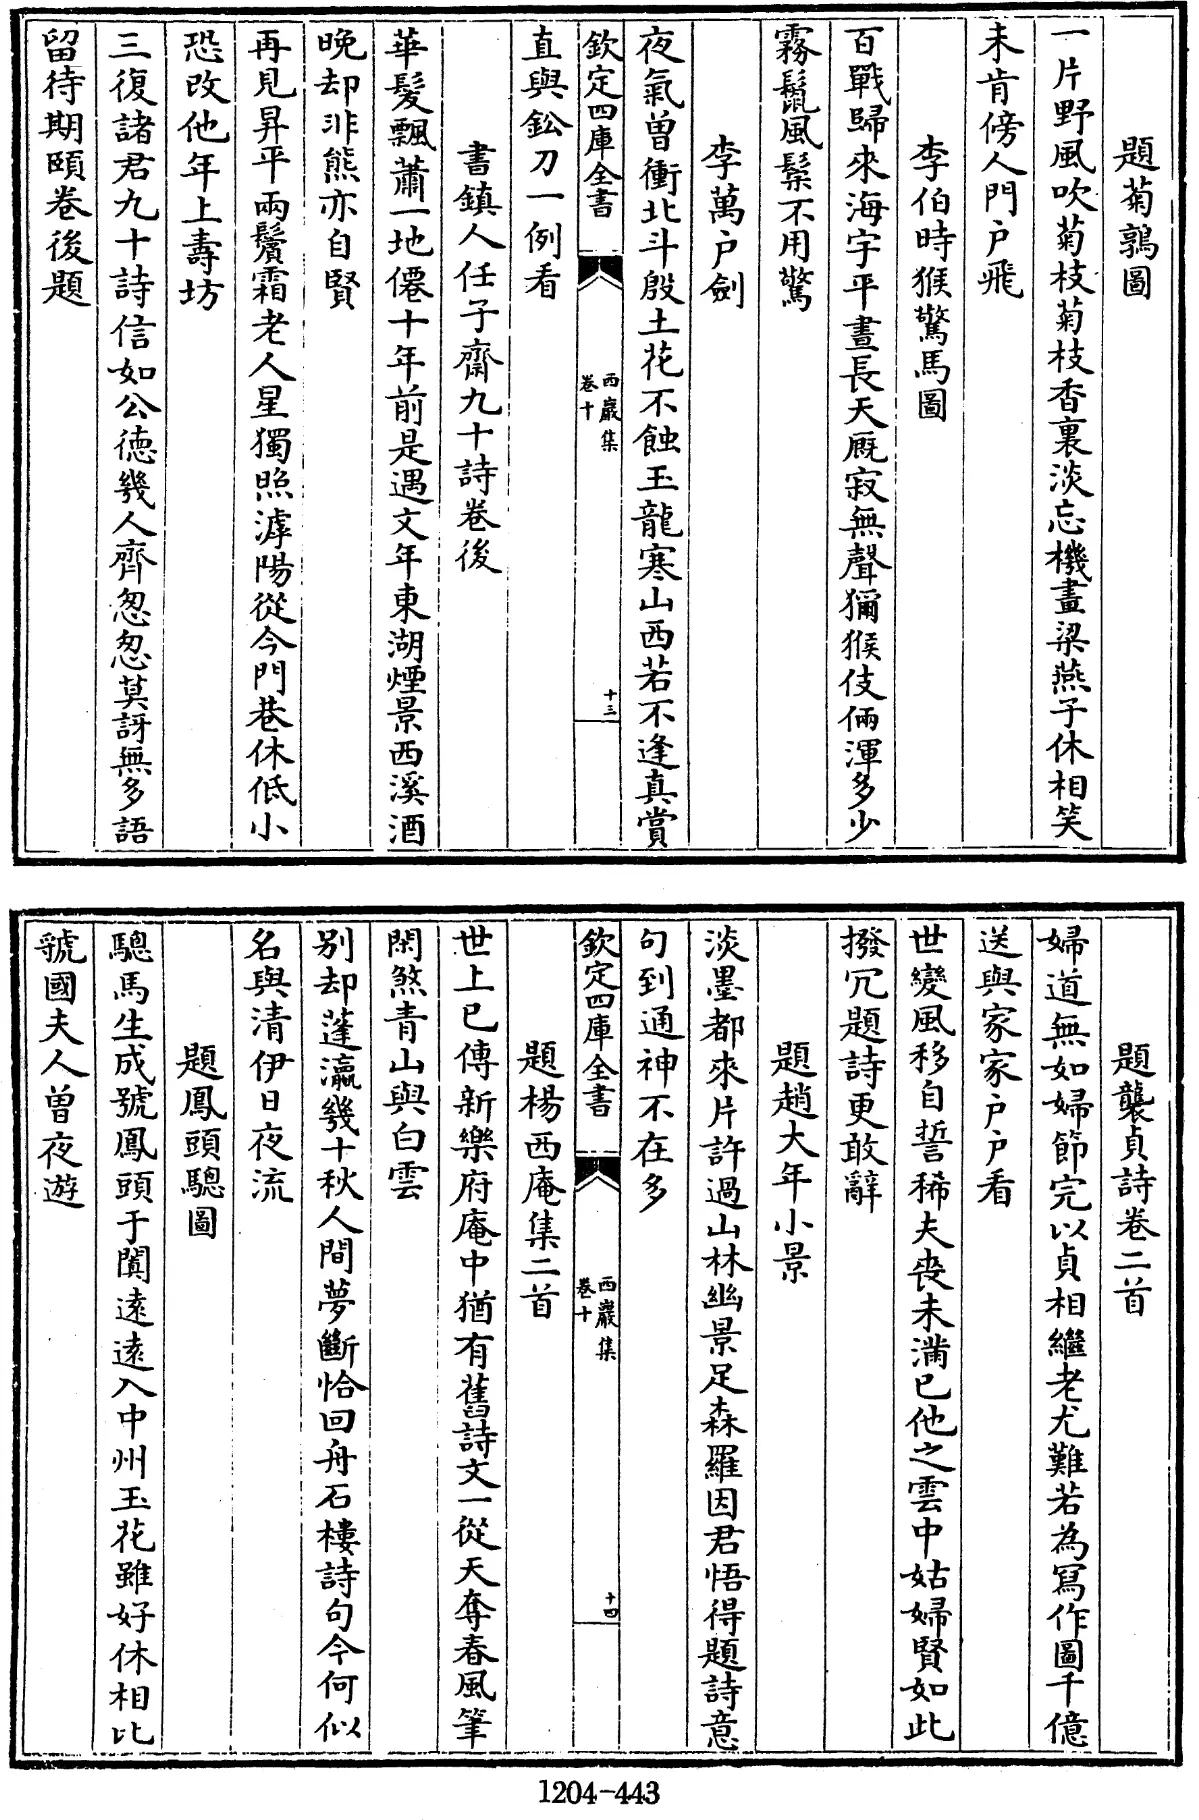 題菊鶉圖
一片野風吹菊枝菊枝香裏淡忘機畫梁燕子休相笑
未肯傍人門户飛
李伯時猴驚馬圖
百戰歸來海宇平晝長天厩寂無聲獼猴伎倆渾多少
霧鬛風騣不用驚
李萬户劍
夜氣曽衝北斗殷土花不蝕玉龍寒山西若不逢真賞
欽定四庫全書
西巖集
卷十
十三
直與鈆刀一例看
書鎮人任子齋九十詩卷後
華髪飄蕭一地僊十年前是遇文年東湖煙景西溪酒
晚却非熊亦自賢
再見昇平兩鬢霜老人星獨照滹陽從今門巷休低小
恐改他年上壽坊
三復諸君九十詩信如公德幾人齊怱怱莫訝無多語
留待期頤卷後題
題襲貞詩卷二首
婦道無如婦節完以貞相繼老尤難若為寫作圖千億
送與家家户户看
世變風移自誓稀夫喪未満已他之雲中姑婦賢如此
撥冗題詩更敢辭
題趙大年小景
淡墨都來片許過山林幽景足森羅因君悟得題詩意
句到通神不在多
欽定四庫全書
西巖集
卷十
十四
題楊西庵集二首
世上已傳新樂府庵中猶有舊詩文一從天奪春風筆
閑煞青山與白雲
别却蓬瀛幾十秋人間夢斷恰回舟石樓詩句今何似
名與清伊日夜流
題鳳頭驄圖
驄馬生成號鳳頭于闐遠遠入中州玉花雖好休相比
虢國夫人曽夜遊
1204-443